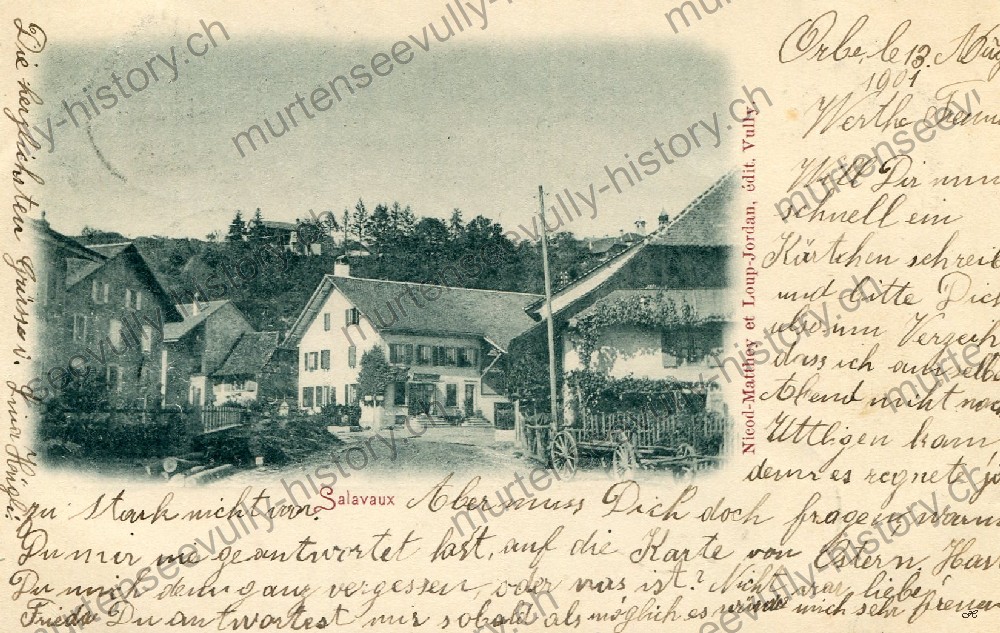 Orbe, le 13.
1901
Werthe
Will Dir nun
schnell ein
Kärtchen schreib
und bitte Dich
also um Verzeih
dass ich am selbe
Abend nicht na
Uttligen kam
denn es regnete ja
zu stark nicht war. Salavaux Aber muss Dich doch fragen waru
Du mir nie geantwortet hast, auf die Karte von Ostern. Has
Du mich denn ganz vergessen, oder was ist? Nicht war, liebe
Frieda Du antwortest mir sobald als möglich es würde mich sehr freuen
Die herzlichsten Grüsse v.
Nicod-Matthey et Loup-Jordan, édit. Vully.
murtenseevully-history.ch